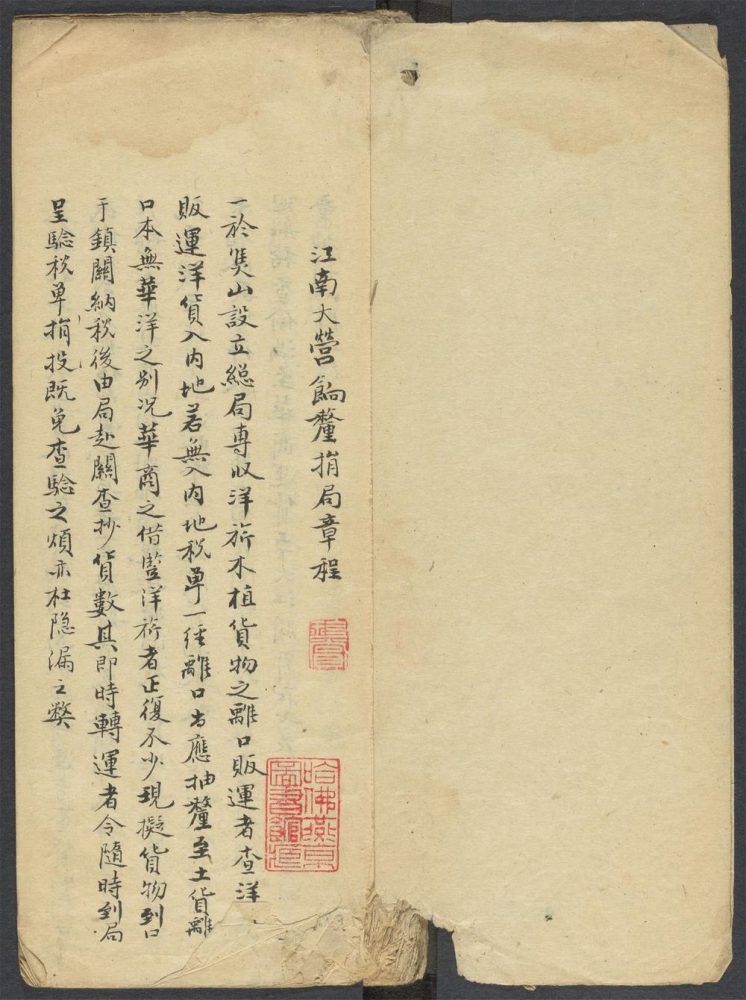 江南大營餉釐捐局章程
一於焦山設立總局專收洋旂木植貨物之離口販運者查洋
販運洋貨入內地若無入內地稅單一經離口卽應抽釐至土貨離
口本無華洋之別況華商之借豎洋旂者正復不少現擬貨物到口
于鎮關納稅後由局赴關查抄貨數其即時轉運者令隨時到局
呈驗稅單捐投既免查驗之煩亦杜隱漏之弊
哈佛燕京
圖書館